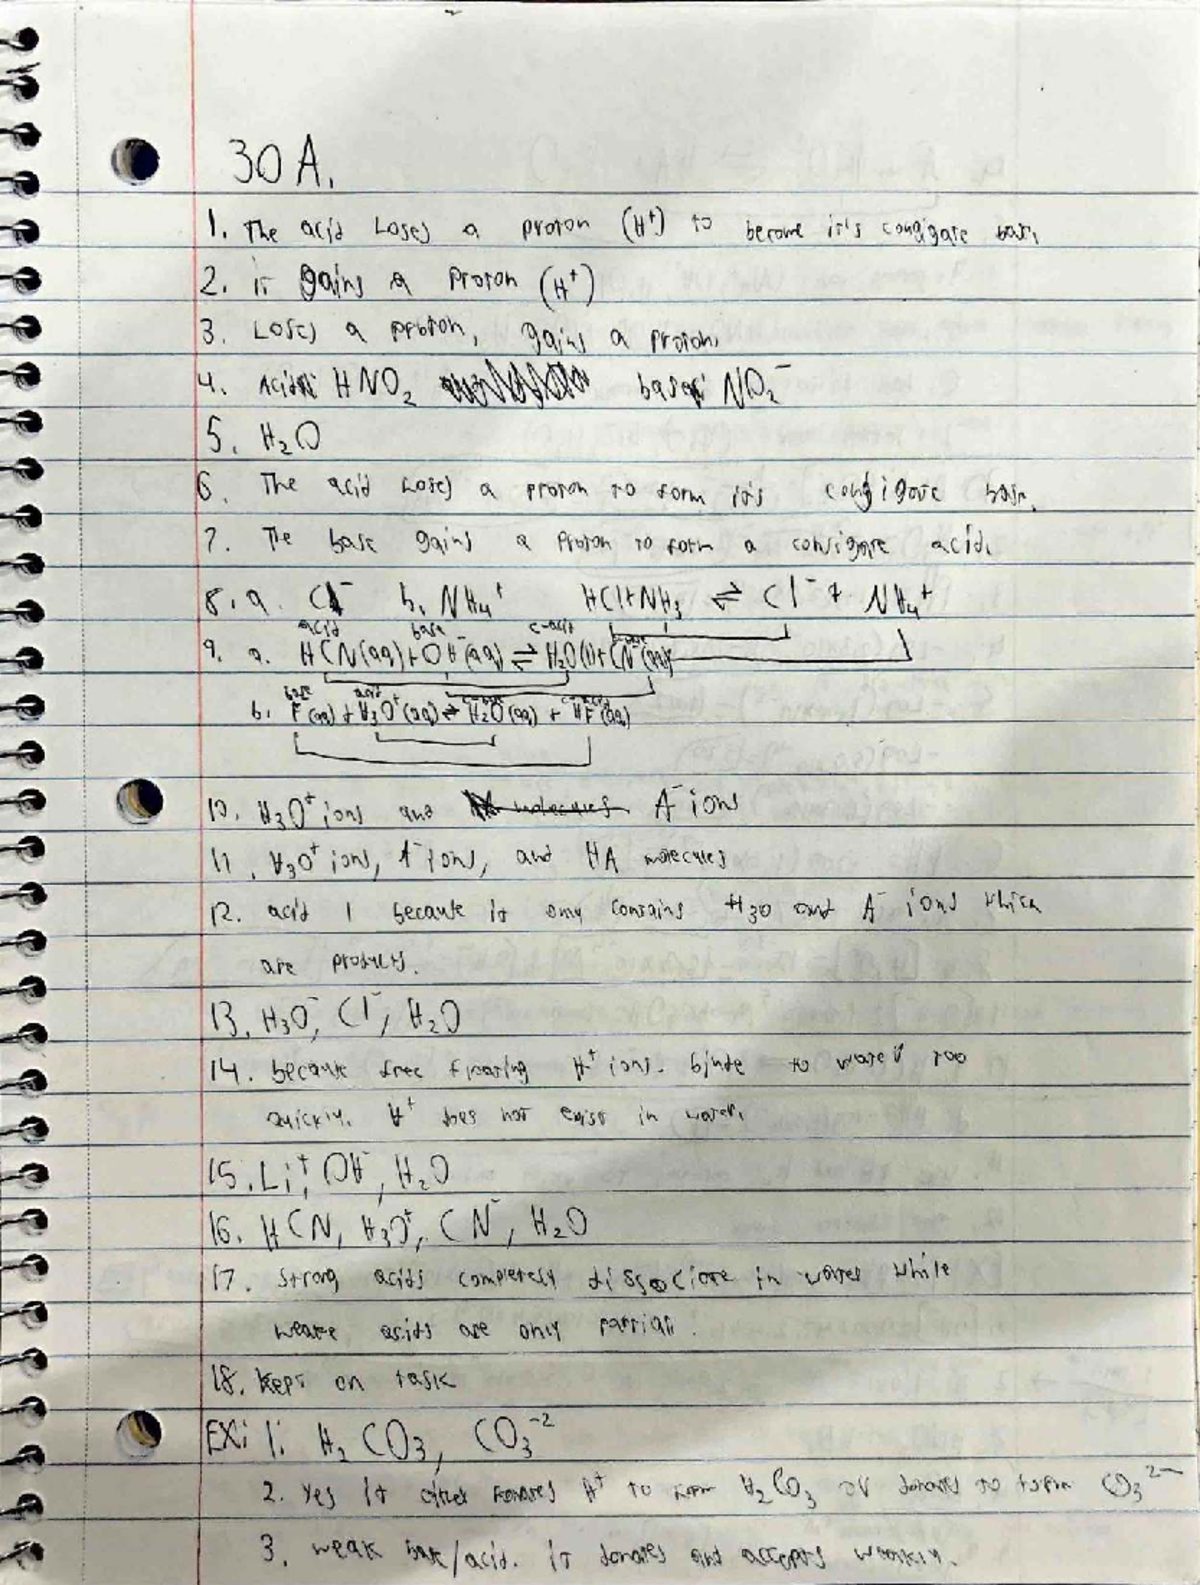 30 A.
1. The acid Loses a proton (H⁺) to become it's conjigate base.
2. it gains a proton (H⁺)
3. Loses a proton, gains a proton.
4. Acid: HNO₂ base: NO₂⁻
5. H₂O
6. The acid Loses a proton to form it's conjigate base.
7. The base gains a proton to form a conjigate acid.
8. a. Cl⁻ b. NH₄⁺ HCl+NH₃ ⇌ Cl⁻ + NH₄⁺
acid base c-acid c-base
9. a. HCN(aq)+OH⁻(aq)⇌H₂O(l)+CN⁻(aq)
base acid c-base c-acid
b. F⁻(aq)+H₃O⁺(aq)⇌H₂O(aq) + HF(aq)
10. H₃O⁺ ions and molecules A⁻ ions
11. H₃O⁺ ions, A⁻ ions, and HA molecules
12. acid 1 because it only contains H₃O and A⁻ ions which
are products.
13. H₃O⁻, Cl⁻, H₂O
14. because free floating H⁺ ions. binde to water too
quickly. H⁺ does not exist in water.
15. Li⁺, OH⁻, H₂O
16. HCN, H₃O⁺, CN⁻, H₂O
17. strong acids completely dissociate in water while
weake acids are only
18. kept on task
EX: 1: H₂CO₃, CO₃⁻²
2. Yes it H⁺ to form H₂CO₃ or donates to form CO₃²⁻
3. weak base/acid. it donates and accepts weakly.